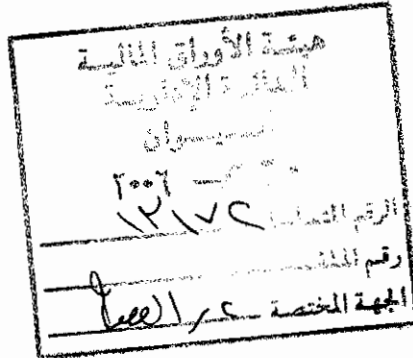 هيئة الأوراق المالية
الدائرة الإدارية
الديوان
٢٠٠٦
الرقم المتسلسل ١٢١٧٢
رقم الملف
الجهة المختصة